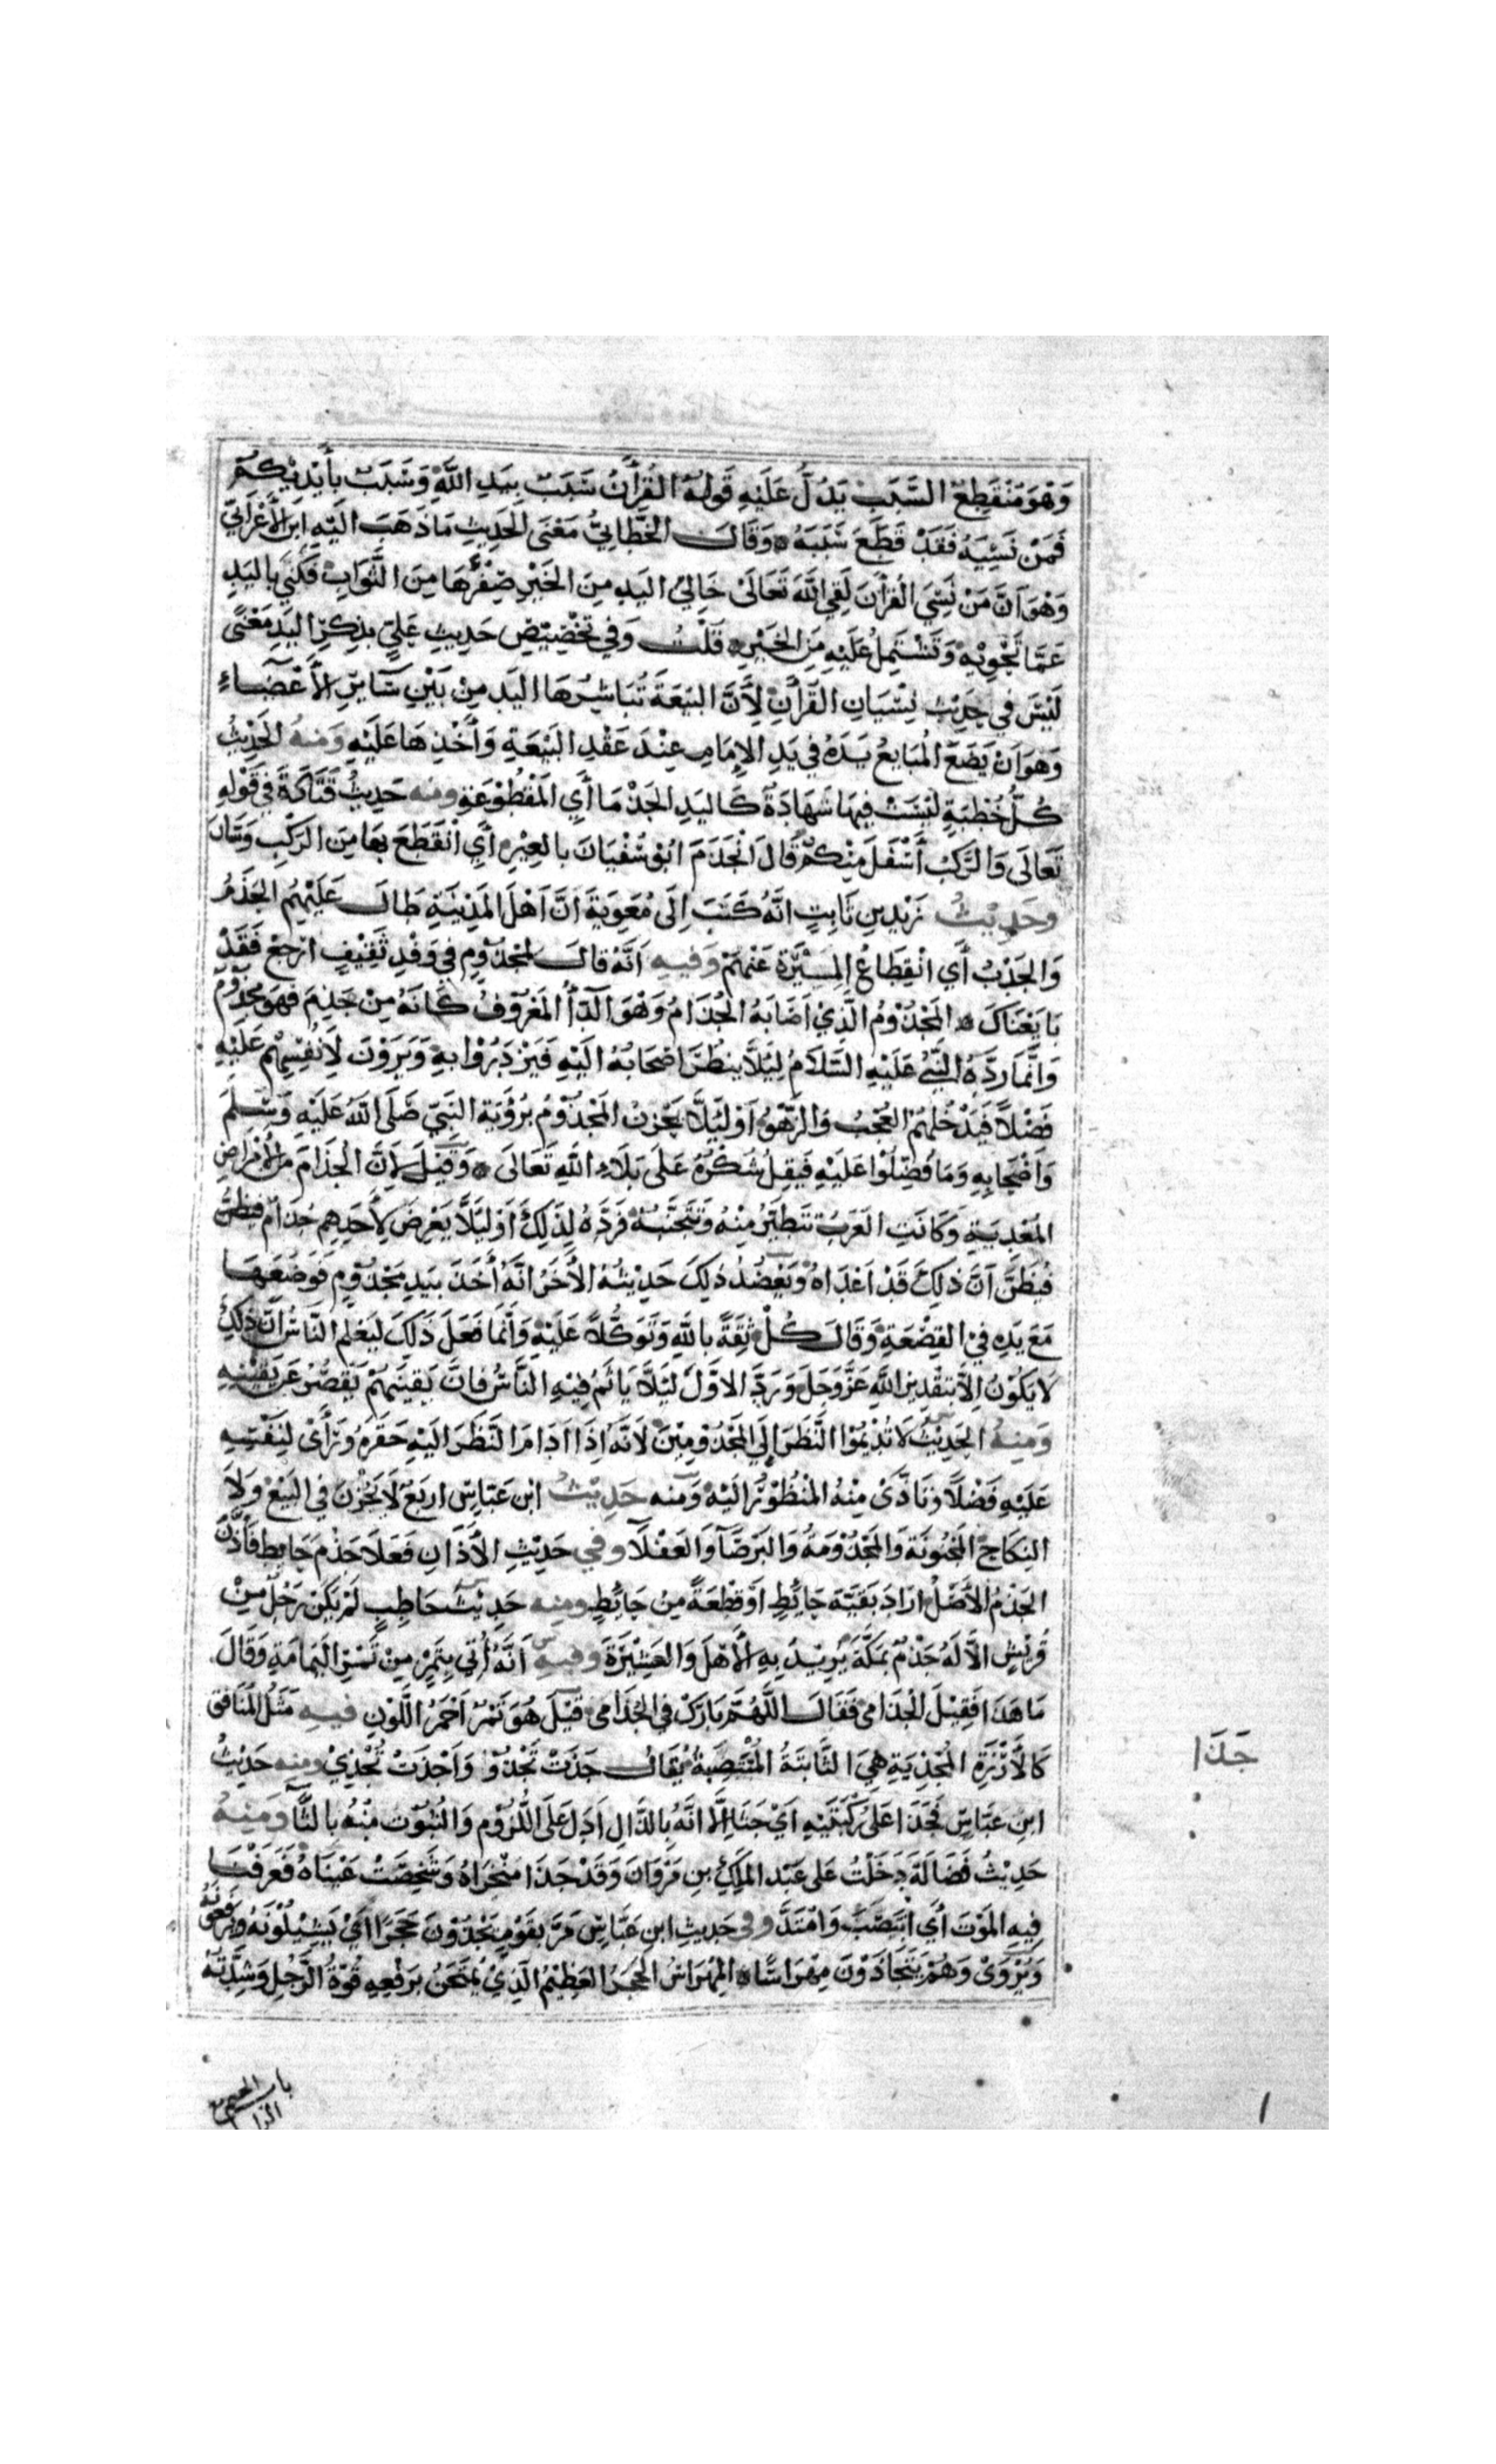 وَهُوَ مُنْقَطِعُ السَّبَبِ يَدُلُّ عَلَيْهِ قَوْلُهُ الْقُرْآنُ سَبَبٌ بِيَدِ اللَّهِ وَسَبَبٌ بِأَيْدِيْكُمْ
فَمَنْ نَسِيَهُ فَقَدْ قَطَعَ سَبَبَهُ وَقَالَ الْخَطَّابِيُّ مَعْنَى الْحَدِيثِ مَا ذَهَبَ اِلَيْهِ ابْنُ الْأَعْرَابِيِّ
وَهُوَ اَنَّ مَنْ نَسِيَ الْقُرْآنَ لَقِيَ اللَّهَ تَعَالَى خَالِيَ الْيَدِ مِنَ الْخَيْرِ صِفْرَهَا مِنَ الثَّوَابِ فَكَنَى بِالْيَدِ
عَمَّا تَحْوِيْهِ وَتَشْتَمِلُ عَلَيْهِ مِنَ الْخَيْرِ قُلْتُ وَفِي تَخْصِيْصِ حَدِيثِ عَلِيٍّ بِذِكْرِ الْيَدِ مَعْنًى
لَيْسَ فِي حَدِيْثِ نِسْيَانِ الْقُرْآنِ لِأَنَّ الْبَيْعَةَ تُبَاشِرُهَا الْيَدُ مِنْ بَيْنِ سَآيِرِ الْأَعْضَاءِ
وَهُوَ اَنْ يَضَعَ الْمُبَايِعُ يَدَهُ فِي يَدِ الْإِمَامِ عِنْدَ عَقْدِ الْبَيْعَةِ وَأَخْذِهَا عَلَيْهِ وَمِنْهُ الْحَدِيْثُ
كُلُّ خُطْبَةٍ لَيْسَتْ فِيهَا شَهَادَةٌ كَالْيَدِ الْجَذْمَا أَيِ الْمَقْطُوْعَةِ وَمِنْهُ حَدِيثُ قَتَادَةَ فِي قَوْلِهِ
تَعَالَى وَالرَّكْبُ أَسْفَلَ مِنْكُمْ قَالَ انْجَذَمَ ابُوْ سُفْيَانَ بِالْعِيْرِ أَيِ انْقَطَعَ بِهَا مِنَ الرَّكْبِ وَسَارَ
وَحَدِيْثُ زَيْدِ بنِ ثَابِتٍ انَّهُ كَتَبَ اِلَى مُعَوِيَةَ اَنَّ اَهْلَ الْمَدِيْنَةِ طَالَ عَلَيْهِمُ الْجَذْمُ
وَالْجَدْبُ أَيِ انْقِطَاعُ الْمِيْرَةِ عَنْهُمْ وَفِيهِ اَنَّهُ قَالَ لِمَجْذُوْمٍ فِي وَفْدِ ثَقِيْفٍ ارْجِعْ فَقَدْ
بَايَعْنَاكَ الْمَجْذُوْمُ الَّذِيْ اَصَابَهُ الْجُذَامُ وَهُوَ الدَّآءُ الْمَعْرُوْفُ كَأَنَّهُ مِنْ جُذِمَ فَهُوَ مَجْذُوْمٌ
وَاِنَّمَا رَدَّهُ النَّبِيُّ عَلَيْهِ السَّلَامُ لِيَلَّا يَنْظُرَ اَصْحَابُهُ اِلَيْهِ فَيَزْدَرُوْا بِهِ وَيَرَوْنَ لِاَنْفُسِهِمْ عَلَيْهِ
فَضْلًا فَيَدْخُلَهُمُ الْعُجْبُ وَالزَّهْوُ اَوْ لِيَلَّا يَحْزَنَ الْمَجْذُوْمُ بِرُؤْيَةِ النَّبِيِّ صَلَّى اللَّهُ عَلَيْهِ وَسَلَّمَ
وَاَصْحَابِهِ وَمَا فُضِّلُوْا عَلَيْهِ فَيَقِلَّ شُكْرُهُ عَلَى بَلَاءِ اللَّهِ تَعَالَى وَقِيْلَ لِاَنَّ الْجُذَامَ مِنَ الْأَمْرَاضِ
الْمُعْدِيَةِ وَكَانَتِ الْعَرَبُ تَتَطَيَّرُ مِنْهُ وَتَتَجَنَّبُهُ فَرَدَّهُ لِذَلِكَ اَوْ لِيَلَّا يَعْرِضَ لِأَحَدِهِمْ جُذَامٌ فَيَظُنَّ
فَيَظُنَّ اَنَّ ذَلِكَ قَدْ اَعْدَاهُ وَيَعْضُدُ ذَلِكَ حَدِيْثُهُ الْأَخَرُ انَّهُ أَخَذَ بِيَدِ مَجْذُوْمٍ فَوَضَعَهَا
مَعَ يَدِهِ فِي الْقَصْعَةِ وَقَالَ كُلْ ثِقَةً بِاللَّهِ وَتَوَكُّلًا عَلَيْهِ وَاِنَّمَا فَعَلَ ذَلِكَ لِيَعْلَمَ النَّاسُ اَنَّ ذَلِكَ
لَا يَكُوْنُ اِلَّا بِتَقْدِيْرِ اللَّهِ عَزَّ وَجَلَّ وَرَدَّ الْاَوَّلَ لِيَلَّا يَاثَمَ فِيْهِ النَّاسُ فَاِنَّ يَقِيْنَهُمْ يَقْصُرُ عَنْ يَقِيْنِهِ
وَمِنْهُ الْحَدِيْثُ لَا تُدِيْمُوْا النَّظَرَ اِلَى الْمَجْذُوْمِيْنَ لِاَنَّهُ اِذَا اَدَامَ النَّظَرَ اِلَيْهِ حَقَرَهُ وَرَأَى لِنَفْسِهِ
عَلَيْهِ فَضْلًا وَتَاذَّى مِنْهُ الْمَنْظُوْرُ اِلَيْهِ وَمِنْهُ حَدِيْثُ ابْنِ عَبَّاسٍ اَرْبَعٌ لَا يَجُزْنَ فِي الْبَيْعِ وَلَا
النِّكَاحِ الْمَجْنُوْنَةُ وَالْمَجْذُوْمَةُ وَالْبَرْصَآ وَالْعَفْلَآ وَفِي حَدِيْثِ الْأَذَانِ فَعَلَا جِذْمَ حَايِطٍ فَأَذَّنَ
الْجِذْمُ الْأَصْلُ اَرَادَ بَقِيَّةَ حَائِطٍ اَوْ قِطْعَةً مِنْ حَائِطٍ وَمِنْهُ حَدِيْثُ حَاطِبٍ لَمْ يَكُنْ رَجُلٌ مِنْ
قُرَيْشٍ اِلَّا لَهُ جِذْمٌ بِمَكَّةَ يُرِيْدُ بِهِ الْأَهْلَ وَالْعَشِيْرَةَ وَفِيْهِ اَنَّهُ أُتِيَ بِتَمْرٍ مِنْ تَمْرِ الْيَمَامَةِ وَقَالَ
مَا هَذَا فَقِيْلَ الْجُذَامِيُّ فَقَالَ اللَّهُمَّ بَارِكْ فِي الْجُذَامِيِّ قِيْلَ هُوَ تَمْرٌ اَحْمَرُ اللَّوْنِ فِيْهِ مَثَلُ الْمُنَافِقِ
كَالْأَرْزَةِ الْمُجْذِيَةِ هِيَ الثَّابِتَةُ الْمُنْتَصِبَةُ يُقَالُ جَذَتْ تَجْذُوْ وَاَجْذَتْ تُجْذِيْ وَمِنْهُ حَدِيْثُ
ابْنِ عَبَّاسٍ فَجَذَا عَلَى رُكْبَتَيْهِ اَيْ جَثَا اِلَّا انَّهُ بِالذَّالِ اَدَلُّ عَلَى اللُّزُوْمِ وَالثُّبُوْتِ مِنْهُ بِالثَّا وَمِنْهُ
حَدِيْثُ فَضَالَةَ دَخَلْتُ عَلَى عَبْدِ الْمَلِكِ بنِ مَرْوَانَ وَقَدْ جَذَا مَنْخِرَاهُ وَشَخِصَتْ عَيْنَاهُ فَعَرَفْنَا
فِيهِ الْمَوْتَ أَيِ انْتَصَبَ وَامْتَدَّ وَفِي حَدِيثِ ابْنِ عَبَّاسٍ مَرَّ بِقَوْمٍ يَجْذُوْنَ حَجَرًا اَيْ يَشِيْلُوْنَهُ وَيَرْفَعُوْنَهُ
وَيُرْوَى وَهُمْ يَتَجَاذَوْنَ مِهْرَاسًا الْمِهْرَاسُ الْحَجَرُ الْعَظِيْمُ الَّذِيْ يُمْتَحَنُ بِرَفْعِهِ قُوَّةُ الرَّجُلِ وَشِدَّتُهُ
جَذَا
باب الجيم مع
الزاء
١